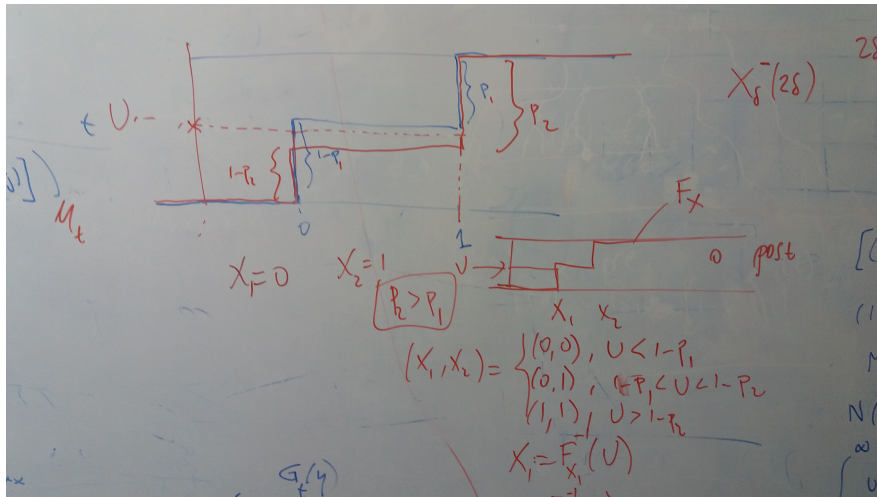 2δ
X_δ^-(2δ)
t U
P_1
P_2
1-P_2
1-P_1
)] )
M_t
0
1
F_X
U →
0 post
X_1=0 X_2=1
P_2>P_1
X_1 X_2
(X_1,X_2)= { (0,0), U<1-P_1
(0,1), 1-P_1<U<1-P_2
(1,1), U>1-P_2
X_1=F_{X_1}^{-1}(U)
G_t(y)
[(
(1
N(
∞
∫